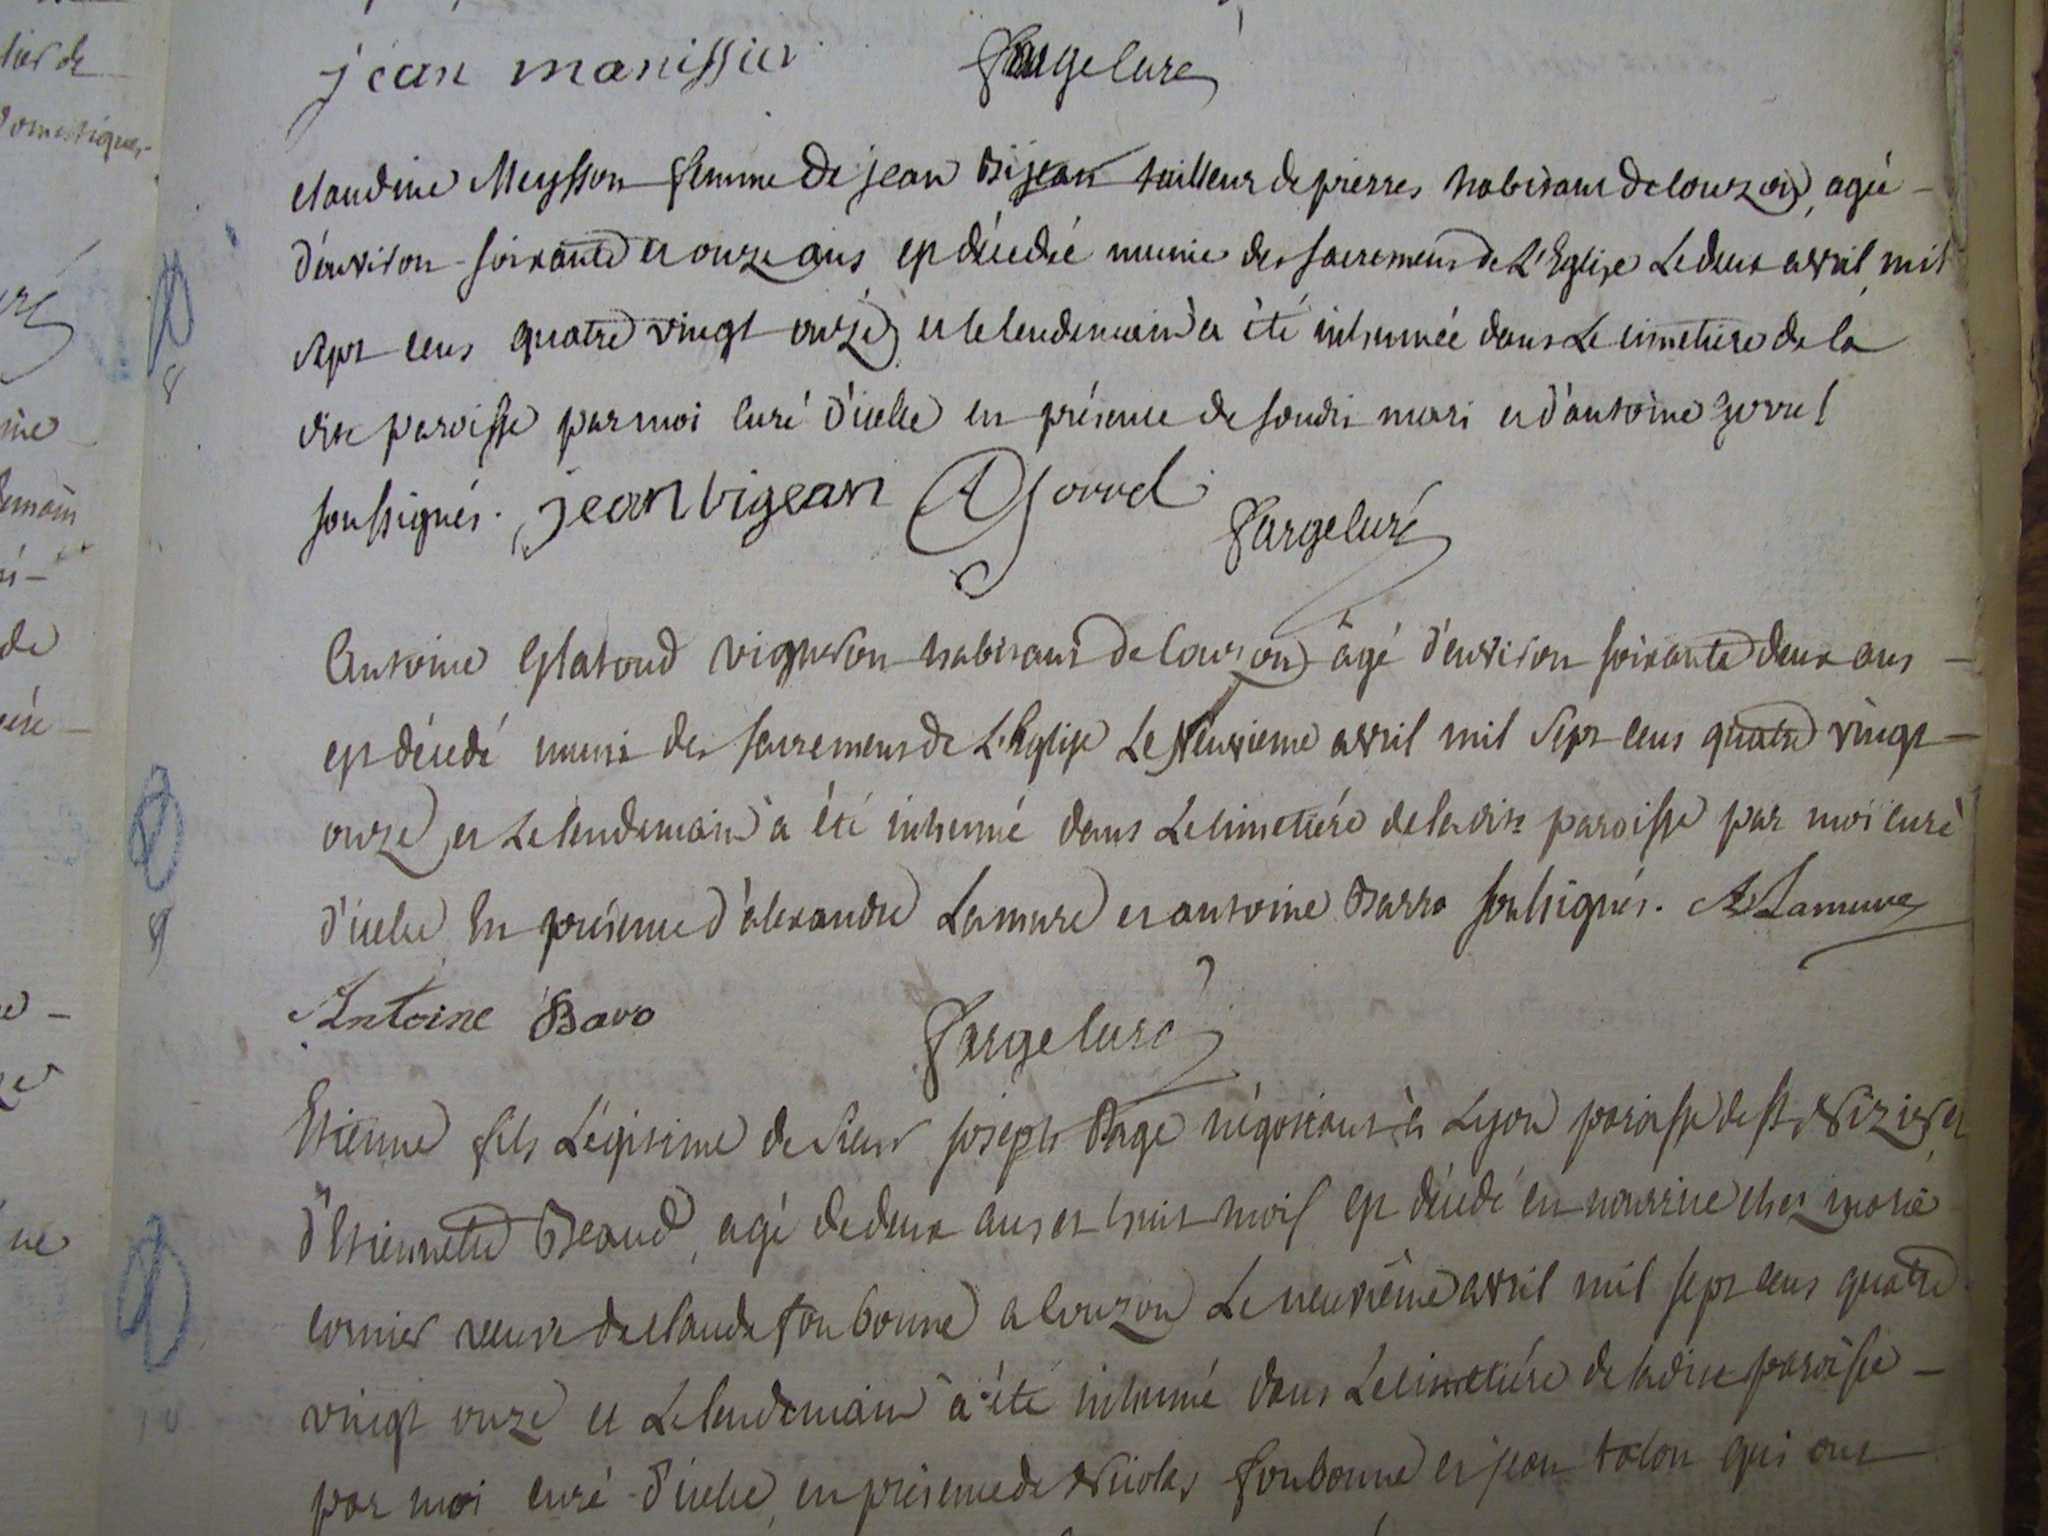 jean manissier farge curé
claudine Meysson femme de jean Bijean tailleur de pierres habitant de Couzon, agée
d'environ soixante et onze ans est décédée munie des sacremens de L'Eglise Le deux avril mil
sept cens quatre vingt onze et le lendemain a été inhumée dans Le cimetiere de la
dite paroisse par moi curé d'icelle en présence de sondit mari et d'antoine
soussignés. jean bigean farge curé
Antoine Glatoud vigneron habitant de Couzon âgé d'environ soixante deux ans
est décédé muni des sacremens de L'Eglise Le Neuvieme avril mil sept cens quatre vingt
onze et Le lendemain a été inhumé dans Le cimetiére de la dite paroisse par moi curé
d'icelle En présence d'alexandre Lamure et antoine Barro soussignés. Lamure
Antoine Baro farge curé
Etienne fils Légitime de sieur joseph Page négociant à Lyon paroisse de St Nizier et
d'Etiennette Beaud, agé de deux ans et huit mois est décédé en nourrice chez marie
cornier veuve de claude fonbonne a Couzon Le neuvième avril mil sept cens quatre
vingt onze et Le lendemain a été inhumé dans Le cimetiére de la dite paroisse
par moi curé d'icelle, en présence de Nicolas fonbonne et jean talon qui ont